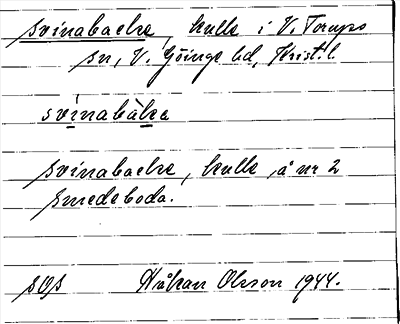 svinabacke, kulle i V. Torups
sn, V. Göinge hd, Krist. l.
svinabàke
svinabacke, kulle, å nr 2
Smedeboda.
SOS Håkan Olsson 1944.